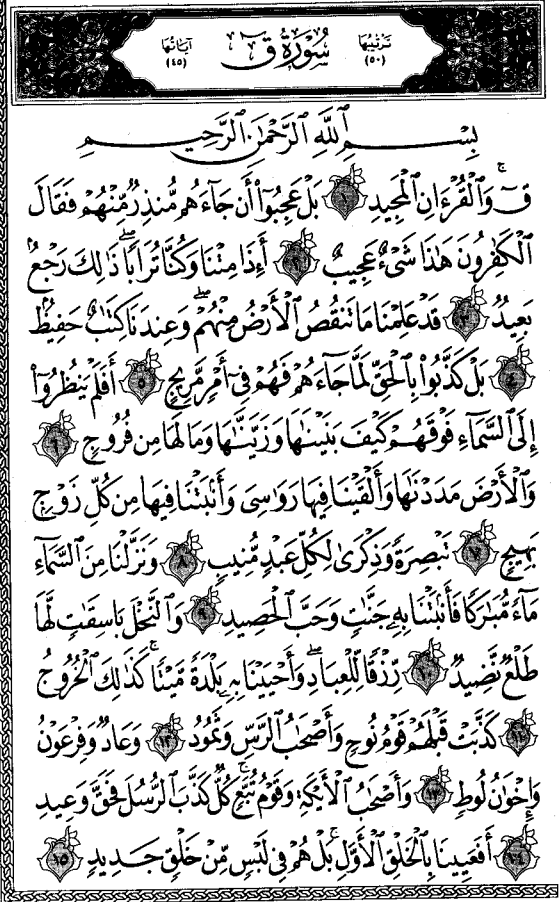 ترتيبها (٥٠) سُورَةُ ق آياتها (٤٥)
بِسْمِ اللَّهِ الرَّحْمَٰنِ الرَّحِيمِ
قٓ ۚ وَالْقُرْءَانِ الْمَجِيدِ ١ بَلْ عَجِبُوٓا۟ أَن جَآءَهُم مُّنذِرٌ مِّنْهُمْ فَقَالَ
الْكَٰفِرُونَ هَٰذَا شَىْءٌ عَجِيبٌ ٢ أَءِذَا مِتْنَا وَكُنَّا تُرَابًا ۖ ذَٰلِكَ رَجْعٌۢ
بَعِيدٌ ٣ قَدْ عَلِمْنَا مَا تَنقُصُ الْأَرْضُ مِنْهُمْ ۖ وَعِندَنَا كِتَٰبٌ حَفِيظٌۢ
٤ بَلْ كَذَّبُوا۟ بِالْحَقِّ لَمَّا جَآءَهُمْ فَهُمْ فِىٓ أَمْرٍ مَّرِيجٍ ٥ أَفَلَمْ يَنظُرُوٓا۟
إِلَى السَّمَآءِ فَوْقَهُمْ كَيْفَ بَنَيْنَٰهَا وَزَيَّنَّٰهَا وَمَا لَهَا مِن فُرُوجٍ ٦
وَالْأَرْضَ مَدَدْنَٰهَا وَأَلْقَيْنَا فِيهَا رَوَٰسِىَ وَأَنۢبَتْنَا فِيهَا مِن كُلِّ زَوْجٍۭ
بَهِيجٍ ٧ تَبْصِرَةً وَذِكْرَىٰ لِكُلِّ عَبْدٍ مُّنِيبٍ ٨ وَنَزَّلْنَا مِنَ السَّمَآءِ
مَآءً مُّبَٰرَكًا فَأَنۢبَتْنَا بِهِۦ جَنَّٰتٍ وَحَبَّ الْحَصِيدِ ٩ وَالنَّخْلَ بَاسِقَٰتٍ لَّهَا
طَلْعٌ نَّضِيدٌ ١٠ رِّزْقًا لِّلْعِبَادِ ۖ وَأَحْيَيْنَا بِهِۦ بَلْدَةً مَّيْتًا ۚ كَذَٰلِكَ الْخُرُوجُ
١١ كَذَّبَتْ قَبْلَهُمْ قَوْمُ نُوحٍ وَأَصْحَٰبُ الرَّسِّ وَثَمُودُ ١٢ وَعَادٌ وَفِرْعَوْنُ
وَإِخْوَٰنُ لُوطٍ ١٣ وَأَصْحَٰبُ الْأَيْكَةِ وَقَوْمُ تُبَّعٍ ۚ كُلٌّ كَذَّبَ الرُّسُلَ فَحَقَّ وَعِيدِ
١٤ أَفَعَيِينَا بِالْخَلْقِ الْأَوَّلِ ۚ بَلْ هُمْ فِى لَبْسٍ مِّنْ خَلْقٍ جَدِيدٍ ١٥